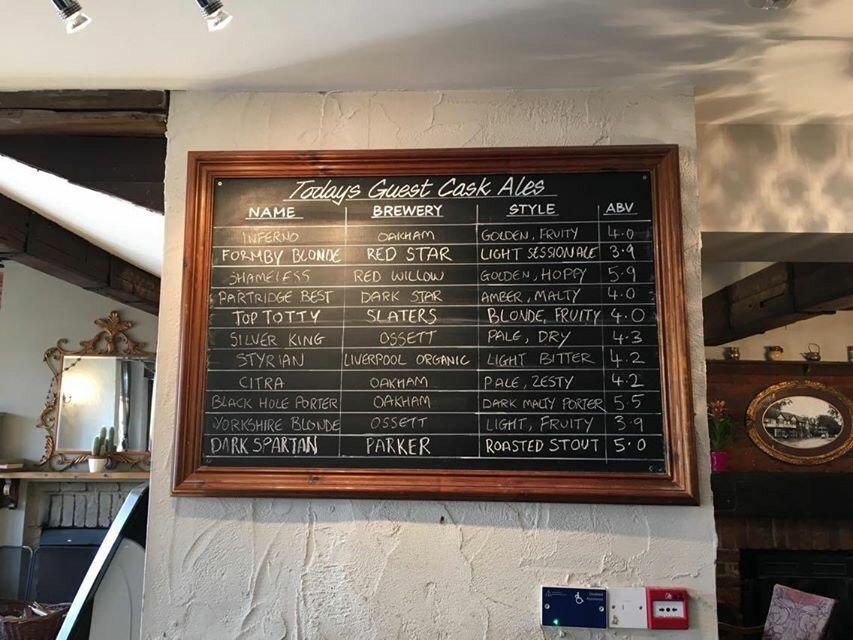 Todays Guest Cask Ales
NAME BREWERY STYLE ABV
INFERNO OAKHAM GOLDEN, FRUITY 4.0
FORMBY BLONDE RED STAR LIGHT SESSION ALE 3.9
SHAMELESS RED WILLOW GOLDEN, HOPPY 5.9
PARTRIDGE BEST DARK STAR AMBER, MALTY 4.0
TOP TOTTY SLATERS BLONDE, FRUITY 4.0
SILVER KING OSSETT PALE, DRY 4.3
STYRIAN LIVERPOOL ORGANIC LIGHT BITTER 4.2
CITRA OAKHAM PALE, ZESTY 4.2
BLACK HOLE PORTER OAKHAM DARK MALTY PORTER 5.5
YORKSHIRE BLONDE OSSETT LIGHT, FRUITY 3.9
DARK SPARTAN PARKER ROASTED STOUT 5.0